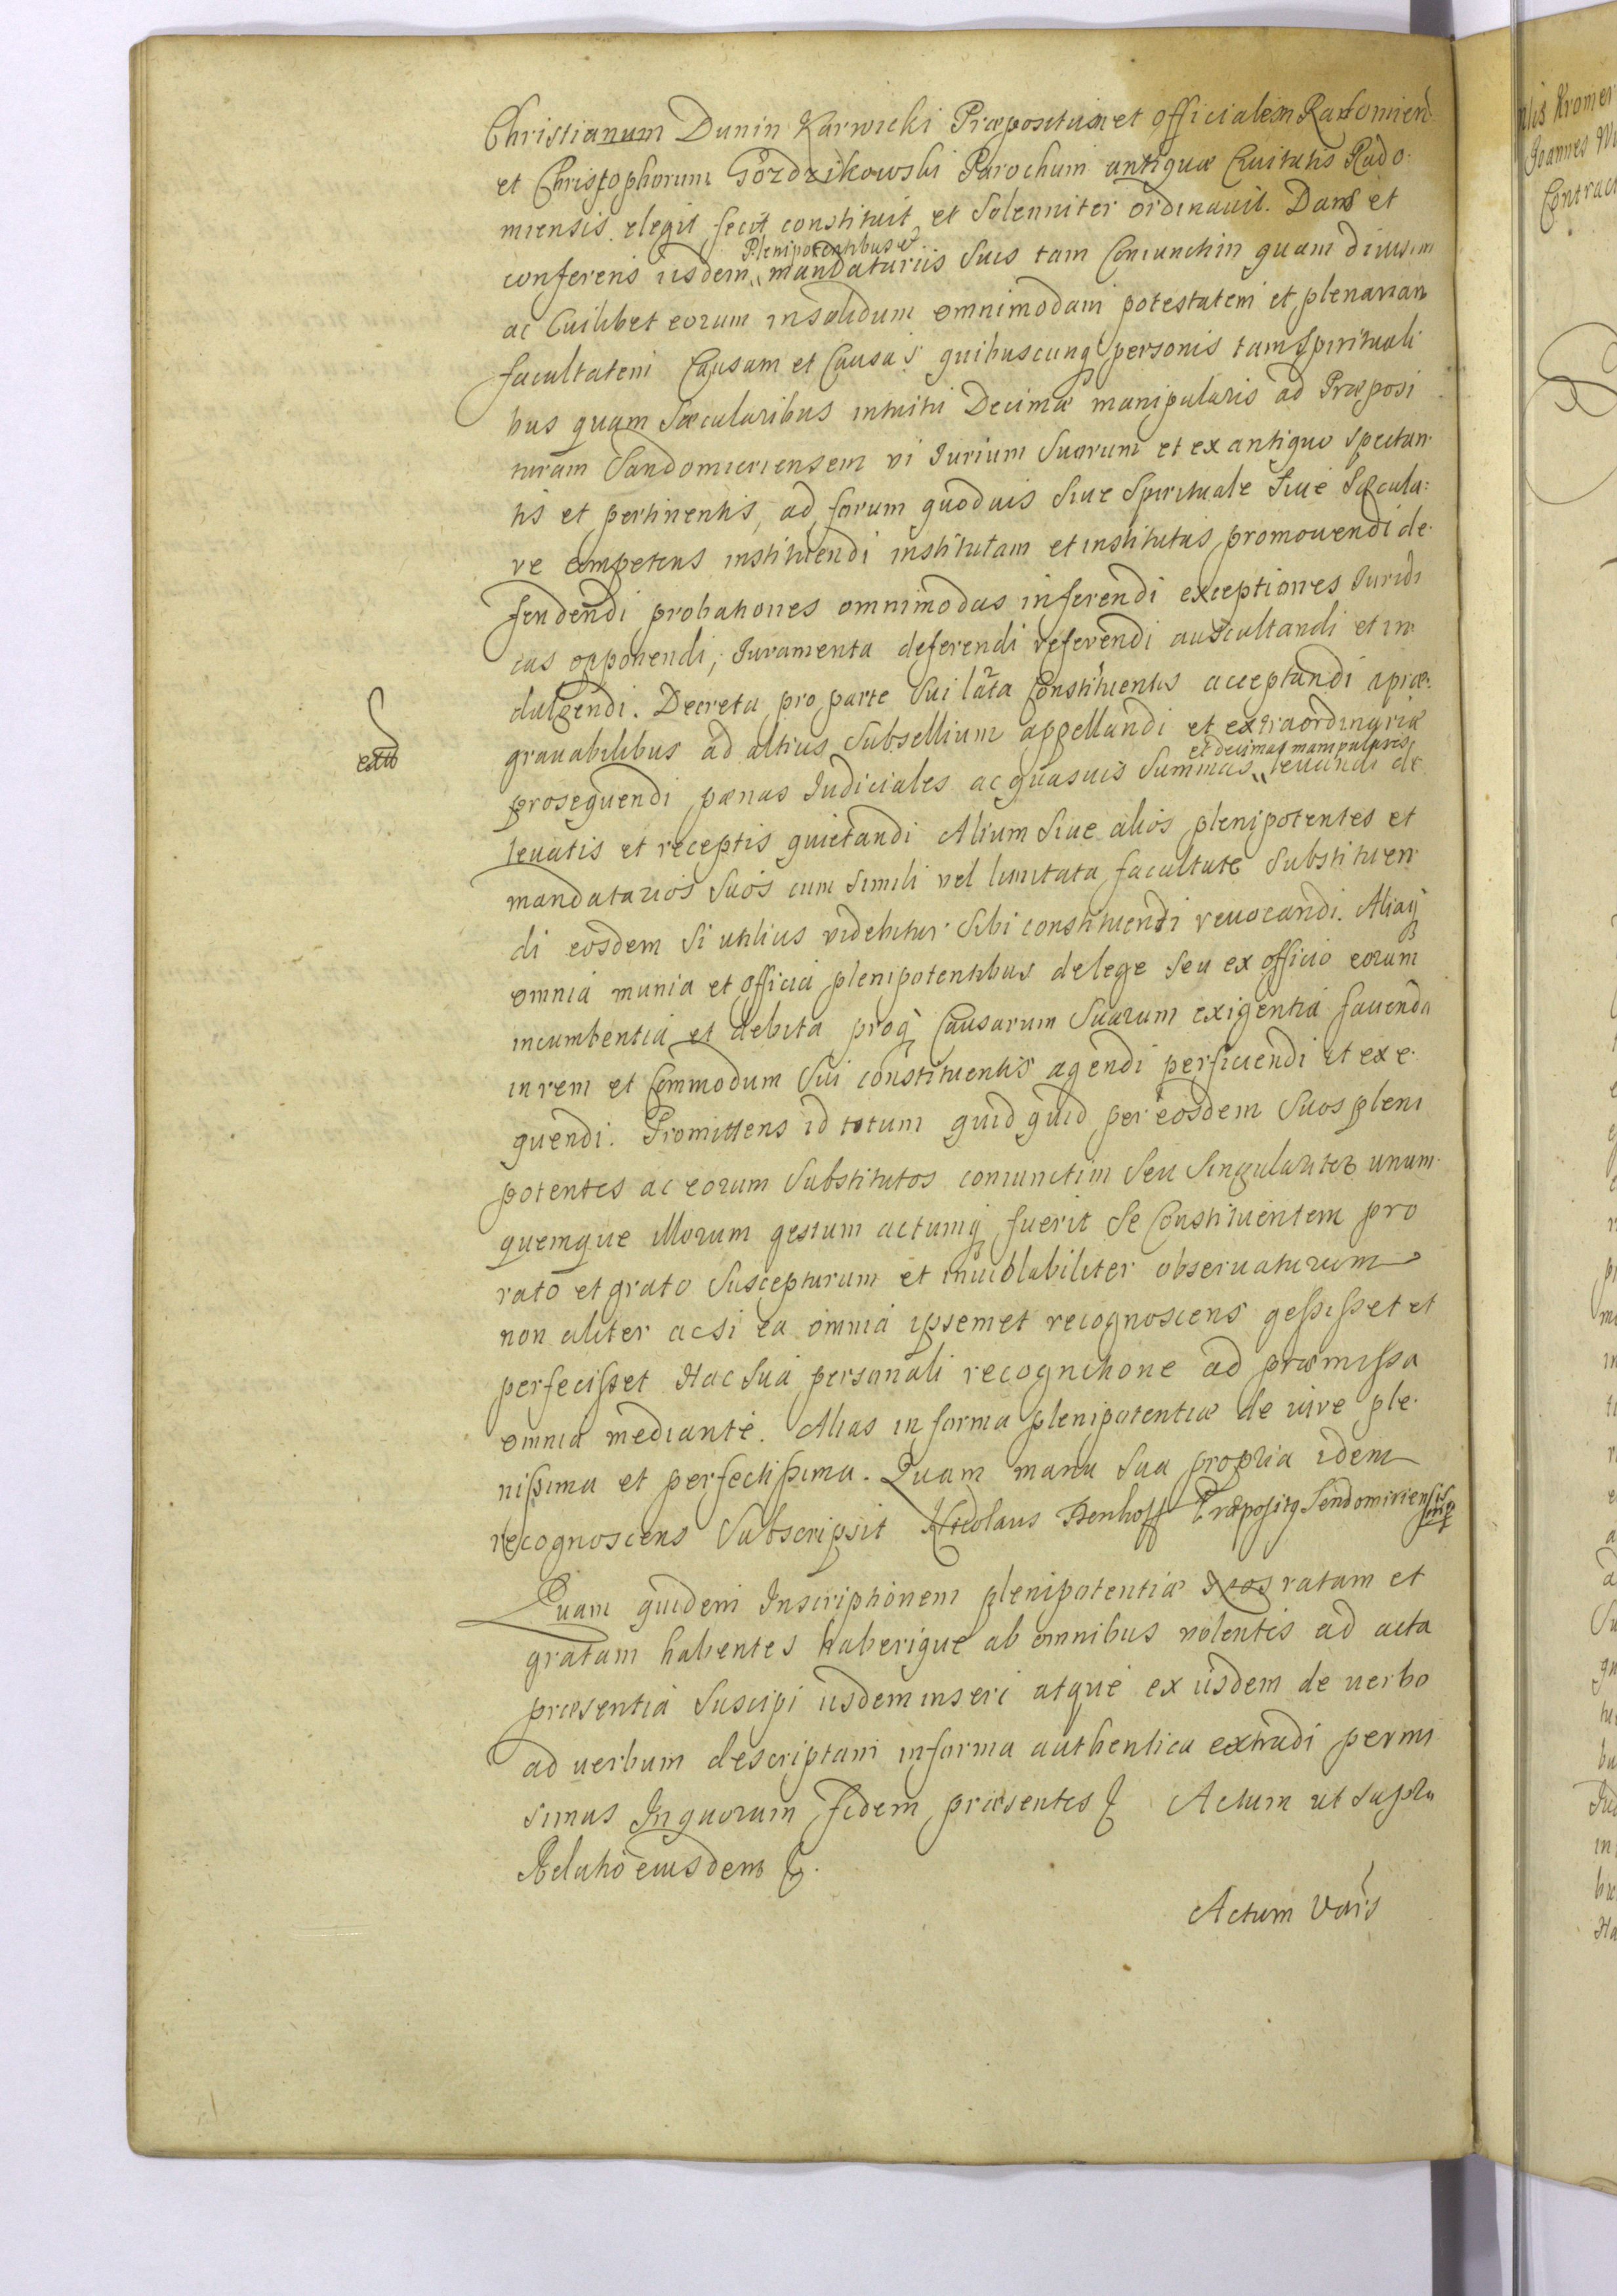 Christianum Dunin Karwicki Præpositum et Officialem Radomien
et Christophorum Gozdzikowski Parochum antiquæ Civitatis Rado
miensis elegit fecit constituit et Solenniter ordinavit. Dans et
Plenipotentibus et
conferens iisdem mandatariis Suis tam Coniunctim quam divisim
ac Cuilibet eorum insolidum omnimodam potestatem et plenariam
facultatem Causam et Causas quibuscunq personis tam Spirituali
bus quam Sæcularibus intuitu Decimæ manipularis ad Præposi
turam Sandomieriensem vi Jurium Suorum et ex antiquo spectan
tis et pertinentis, ad forum quodvis Sive Spirituale Sive Sæcula:
re competens instituendi institutam et institutas promovendi de
fendendi probationes omnimodas inferendi exceptiones Juridi
cas opponendi, Juramenta deferendi referendi auscultandi et in
dulgendi. Decreta pro parte Sui lata Constituentis acceptandi a præ:
gravabilibus ad altius Subsellium appellandi et extraordinarie
et decimas manipulares
prosequendi pænas Judiciales ac quasvis Summas levandi de
levatis et receptis quietandi Alium Sive alios plenipotentes et
mandatarios Suos cum Simili vel limitata facultate Substituen
di eosdem Si utilius videbitur Sibi constituendi revocandi. Aliaq
omnia munia et officia plenipotentibus de lege Seu ex officio eorum
incumbentia et debita proq Causarum Suarum exigentia favenda
in rem et Commodum Sui constituentis agendi perficiendi et exe
quendi. Promittens id totum quidquid per eosdem Suos pleni
potentes ac eorum Substitutos coniunctim Seu Singulariter unum
quemque illorum gestum actumq fuerit Se Constituentem pro
rato et grato Suscepturum et inviolabiliter observaturum
non aliter acsi ea omnia ipsemet recognoscens gessisset et
perfecisset Hac Sua personali recognitione ad præmissa
omnia mediante. Alias in forma plenipotentiæ de iure ple
nissima et perfectissima. Quam manu Sua propria idem
recognoscens Subscripsit Nicolaus Præpositq Sendomiriensis
mp
Quam quidem Inscriptionem plenipotentiæ Nos ratam et
gratam habentes haberique ab omnibus volentes ad acta
præsentia Suscipi iisdem inseri atque ex iisdem de verbo
ad verbum descriptam in forma authentica extradi permi
simus In quorum fidem præsentes Actum ut supra
Relatio eiusdem
Actum Vars